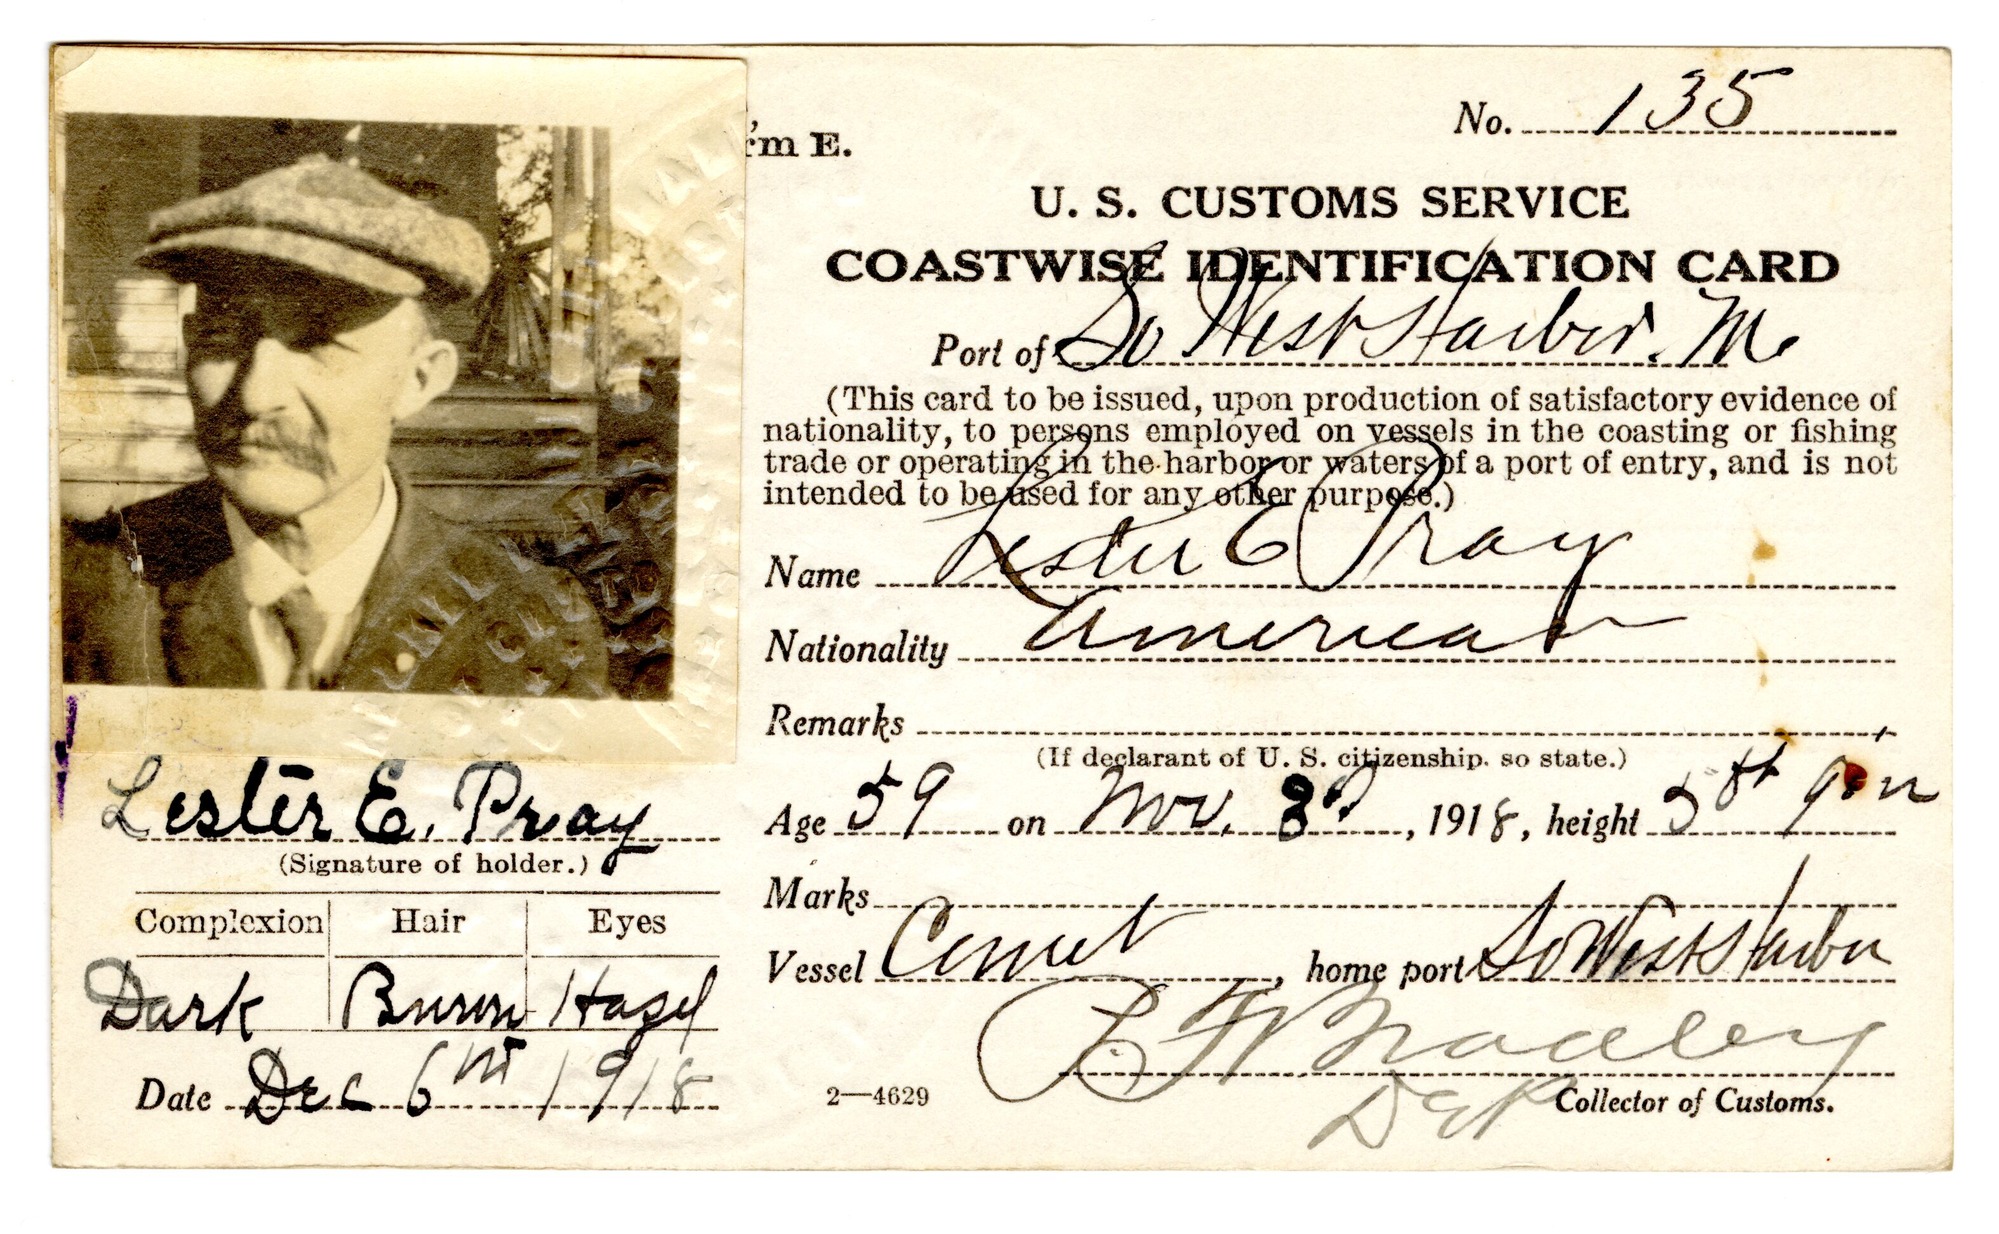 'm E.
No. 135
U. S. CUSTOMS SERVICE
COASTWISE IDENTIFICATION CARD
Port of So West Harbor. Me
(This card to be issued, upon production of satisfactory evidence of
nationality, to persons employed on vessels in the coasting or fishing
trade or operating in the harbor or waters of a port of entry, and is not
intended to be used for any other purpose.)
Name Lester E Pray
Nationality American
Remarks
(If declarant of U. S. citizenship, so state.)
Age 59 on Nov. 3d, 1918, height 5 ft 9 in
Marks
Vessel Comet, home port So West Harbor
Collector of Customs.
Dep
2—4629
Lester E. Pray
(Signature of holder.)
Complexion Hair Eyes
Dark Brown Hazel
Date Dec 6th 1918